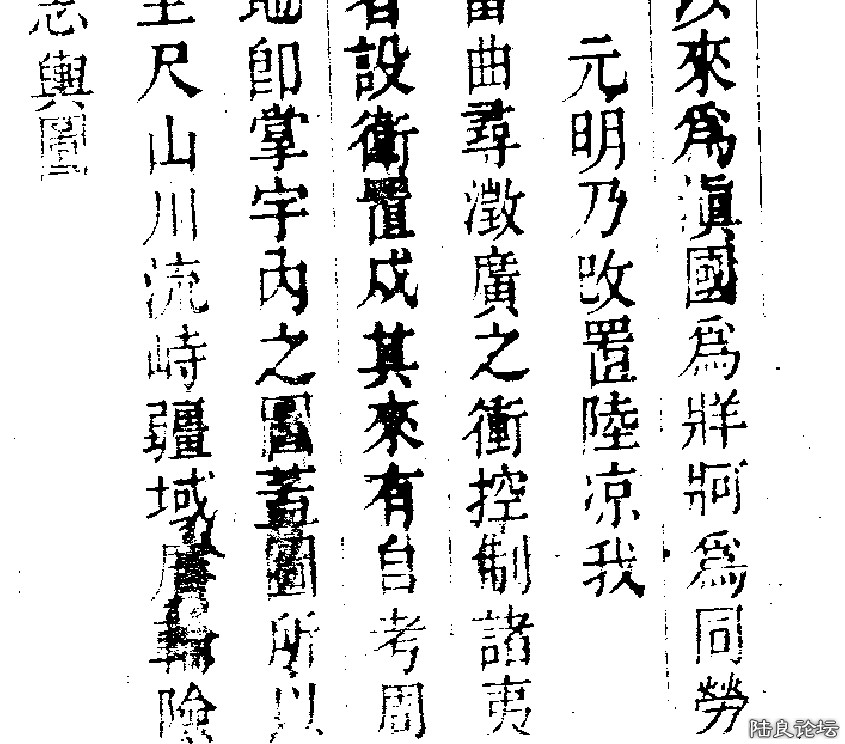 以來爲滇國爲牂牁爲同勞
元明乃改置陸凉我
曲尋澂廣之衝控制諸夷
者設衛置成其來有自考周
地即掌宇内之圖蓋圖所以
至尺山川流峙疆域 險
志輿圖
陆良论坛